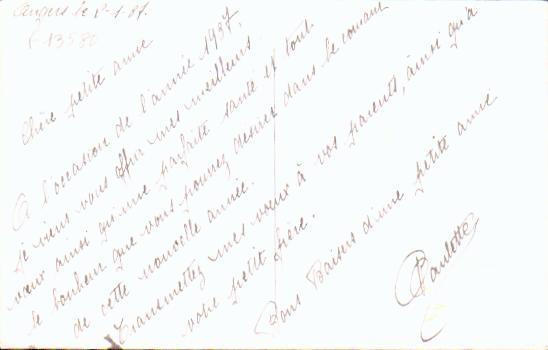 Angers le 2-1-37.
Chère petite amie
A l'occasion de l'année 1937,
je viens vous offrir mes meilleurs
vœux ainsi qu'une parfaite santé et tout
le bonheur que vous pouvez désirer dans le courant
de cette nouvelle année.
Transmettez mes vœux à vos parents, ainsi qu'à
votre petit frère.
Bons Baisers d'une petite amie
Paulette